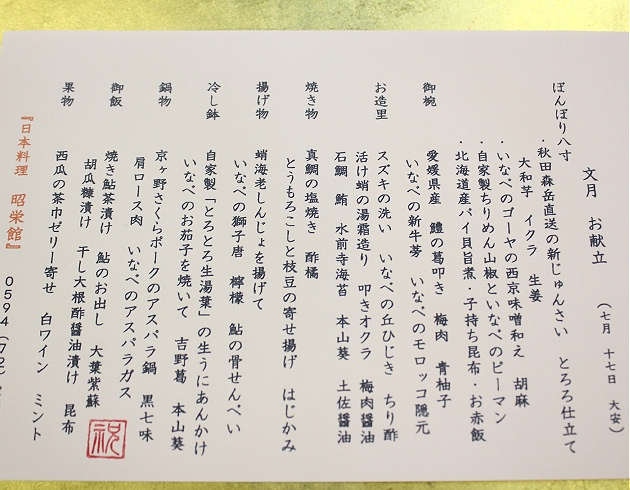 文月 お献立
(七月 十七日 大安)
ぼんぼり八寸
・秋田森岳直送の新じゅんさい とろろ仕立て
大和芋 イクラ 生姜
・いなべのゴーヤの西京味噌和え 胡麻
・自家製ちりめん山椒といなべのピーマン
・北海道産バイ貝旨煮・子持ち昆布・お赤飯
御椀 愛媛県産 鱧の葛叩き 梅肉 青柚子
いなべの新牛蒡 いなべのモロッコ隠元
お造里 スズキの洗い いなべの丘ひじき ちり酢
活け蛸の湯霜造り 叩きオクラ 梅肉醤油
石鯛 鮪 水前寺海苔 本山葵 土佐醤油
焼き物 真鯛の塩焼き 酢橘
とうもろこしと枝豆の寄せ揚げ はじかみ
揚げ物 蛸海老しんじょを揚げて
いなべの獅子唐 檸檬 鮎の骨せんべい
冷し鉢 自家製「とろとろ生湯葉」の生うにあんかけ
いなべのお茄子を焼いて 吉野葛 本山葵
鍋物 京ヶ野さくらポークのアスパラ鍋 黒七味
肩ロース肉 いなべのアスパラガス
御飯 焼き鮎茶漬け 鮎のお出し 大葉紫蘇
胡瓜糠漬け 干し大根酢醤油漬け 昆布
果物 西瓜の茶巾ゼリー寄せ 白ワイン ミント
祝
『日本料理 昭栄館』
0594(72)